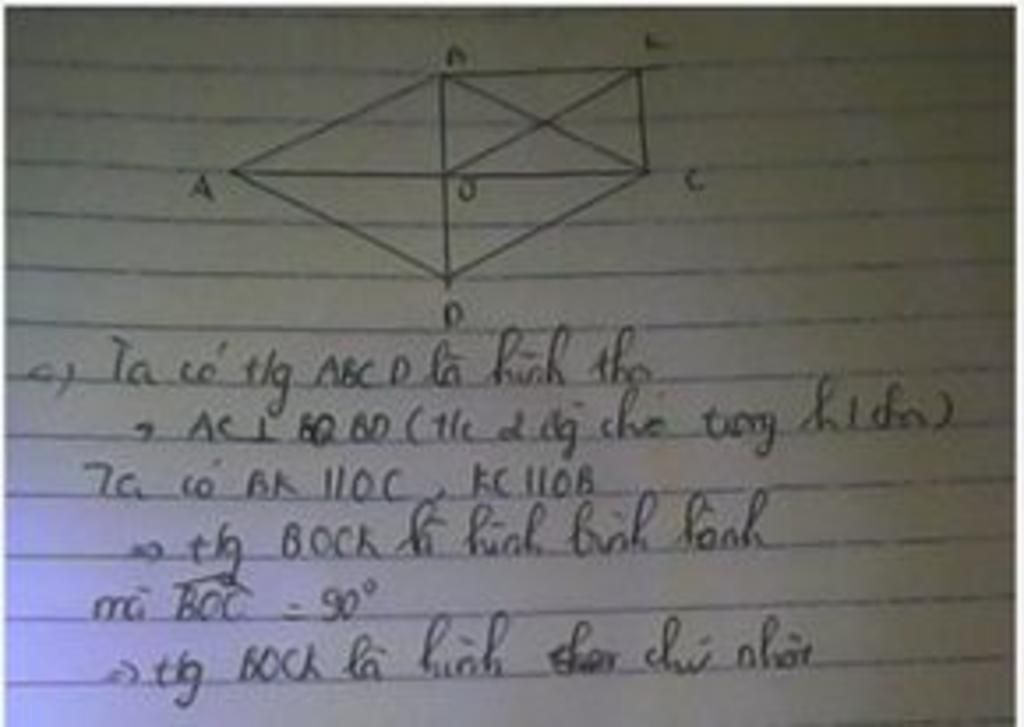 B K
A O C
D
a) Ta có t/g ABCD là hình thoi
→ AC ⊥ BD (t/c 2 đg chéo trong h thoi)
Ta có BK // OC, KC // OB
=> t/g BOCK là hình bình hành
mà BOC = 90°
=> t/g BOCK là hình chữ nhật